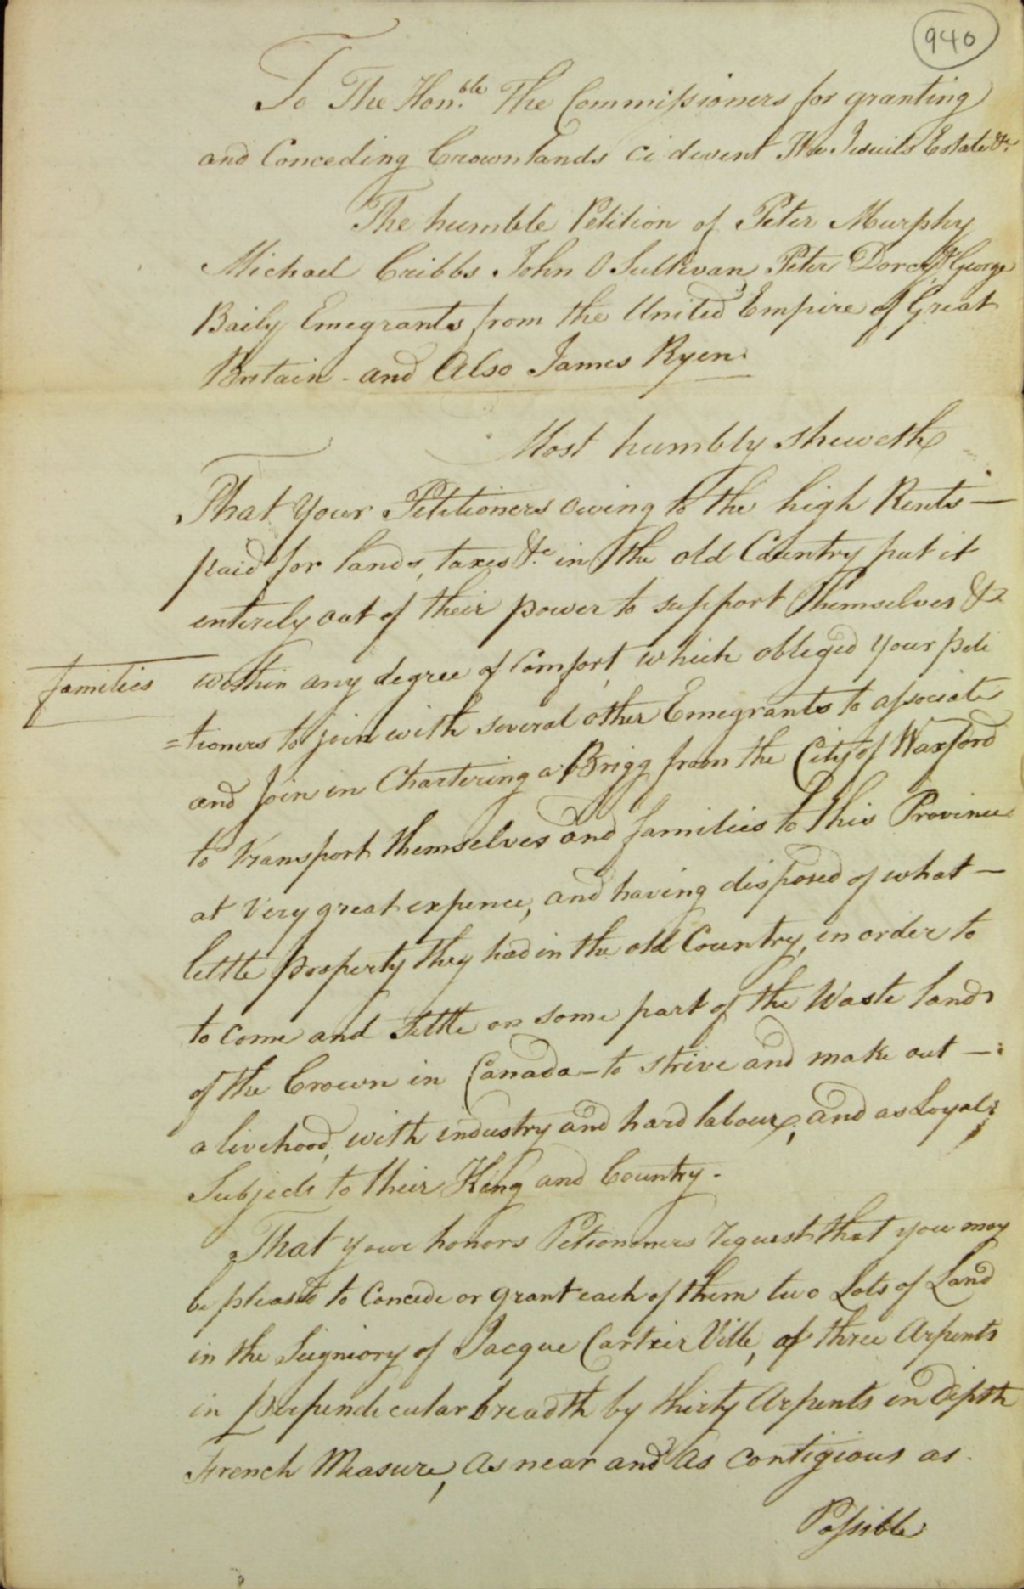 940
To The Hon.ble The Commissioners for granting
and Conceding Crown lands ci devent the Jesuits Estate &c
The humble Petition of Peter Murphy
Michael Cribbs John O Sullivan, Peter Dorcy, & George
Baily Emegrants from the United Empire of Great
Britain - and Also James Ryen.
Most humbly sheweth
That Your Petitioners owing to the high Rents —
paid for lands, taxes &c. in the old Country put it
entirely out of their power to support themselves &
families
within any degree of Comfort, which obliged your peti
=tioners to join with several other Emegrants to associate
and Join in Chartering a Brigg from the City of Waxford
to transport themselves and families to this Province
at Very great expence, and having disposed of what —
little Property they had in the old Country, in order to
to come and Settle on some part of the Waste lands
of the Crown in Canada – to strive and make out —
a livehood, with industry and hard labour, and as Loyal
Subjects to their King and Country.
That your honors Petionners request that you may
be pleased to Concede or grant each of them two Lots of Land
in the Siegniory of Jacque Cartier Ville, of three Arpents
in Perpendicular breadth by thirty Arpents in Depth
French Measure, As near and as contigious as
Possible